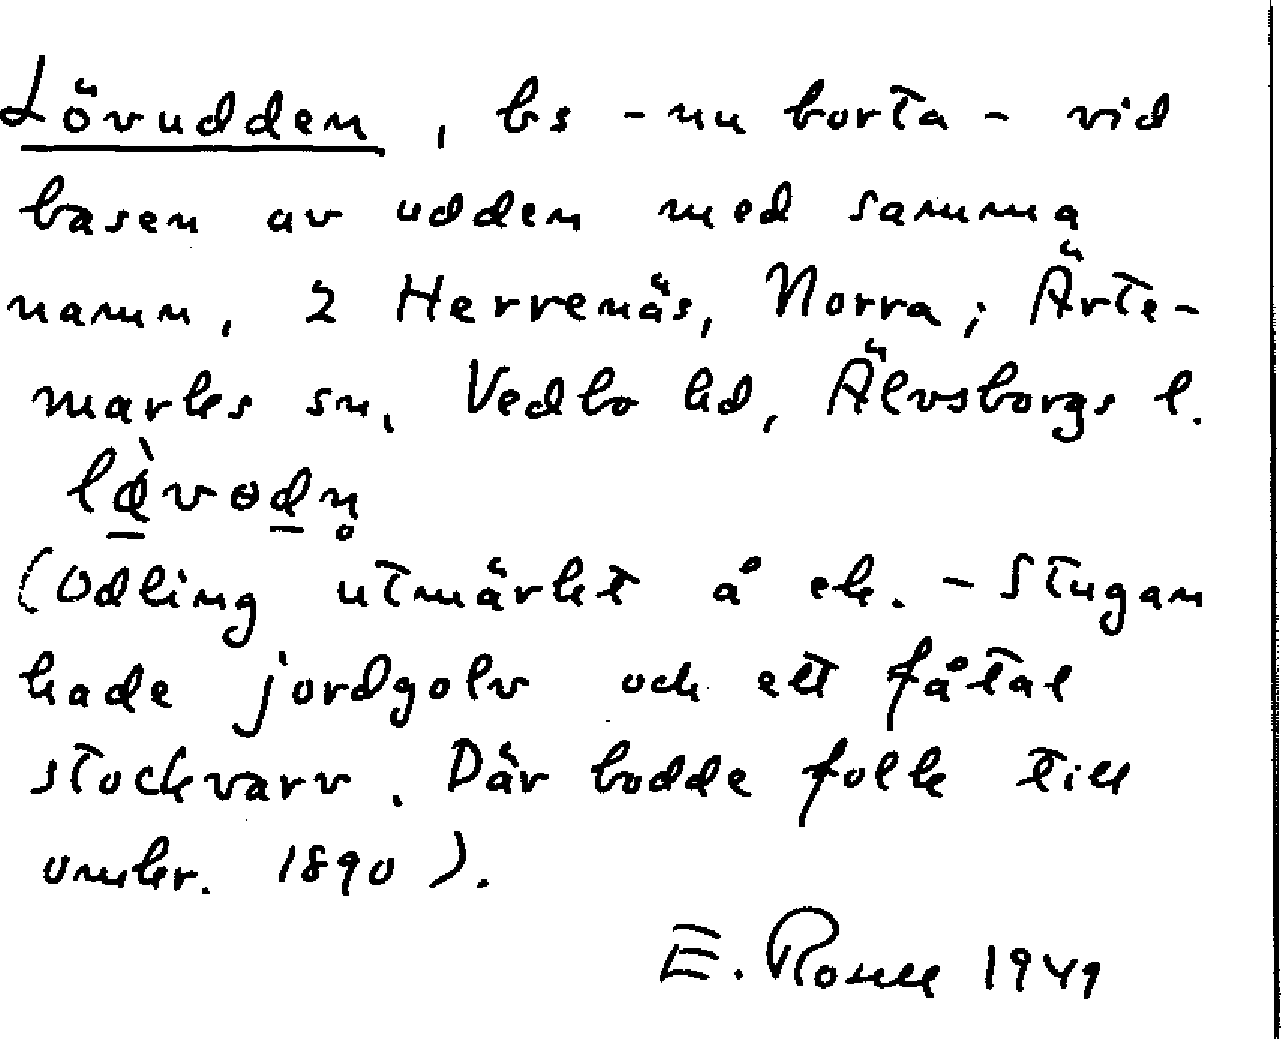 Lövudden, bs - nu borta - vid
basen av udden med samma
namn, 2 Herrenäs, Norra; Ärte-
marks sn, Vedbo hd, Älvsborgs l.
(Odling utmärkt å ek. - Stugan
hade jordgolv och ett fåtal
stockvarv. Där bodde folk till
omkr. 1890).
E.